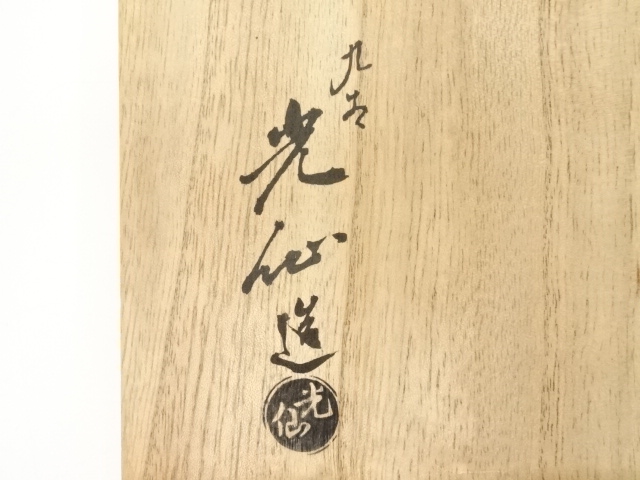 九谷
光仙造
光仙